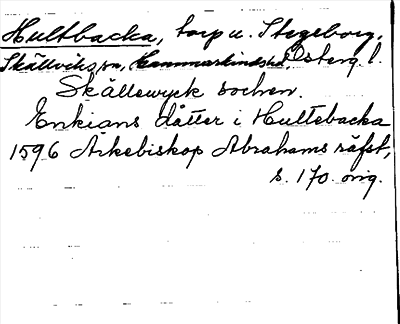 Hultbacka, torp u. Stegeborg,
Skällviks sn, Hammarkinds hd, Österg. l.
Skällewyck sochen.
Enkians dåtter i Hultebacka
1596 Ärkebiskop Abrahams räfst,
s. 170 orig.